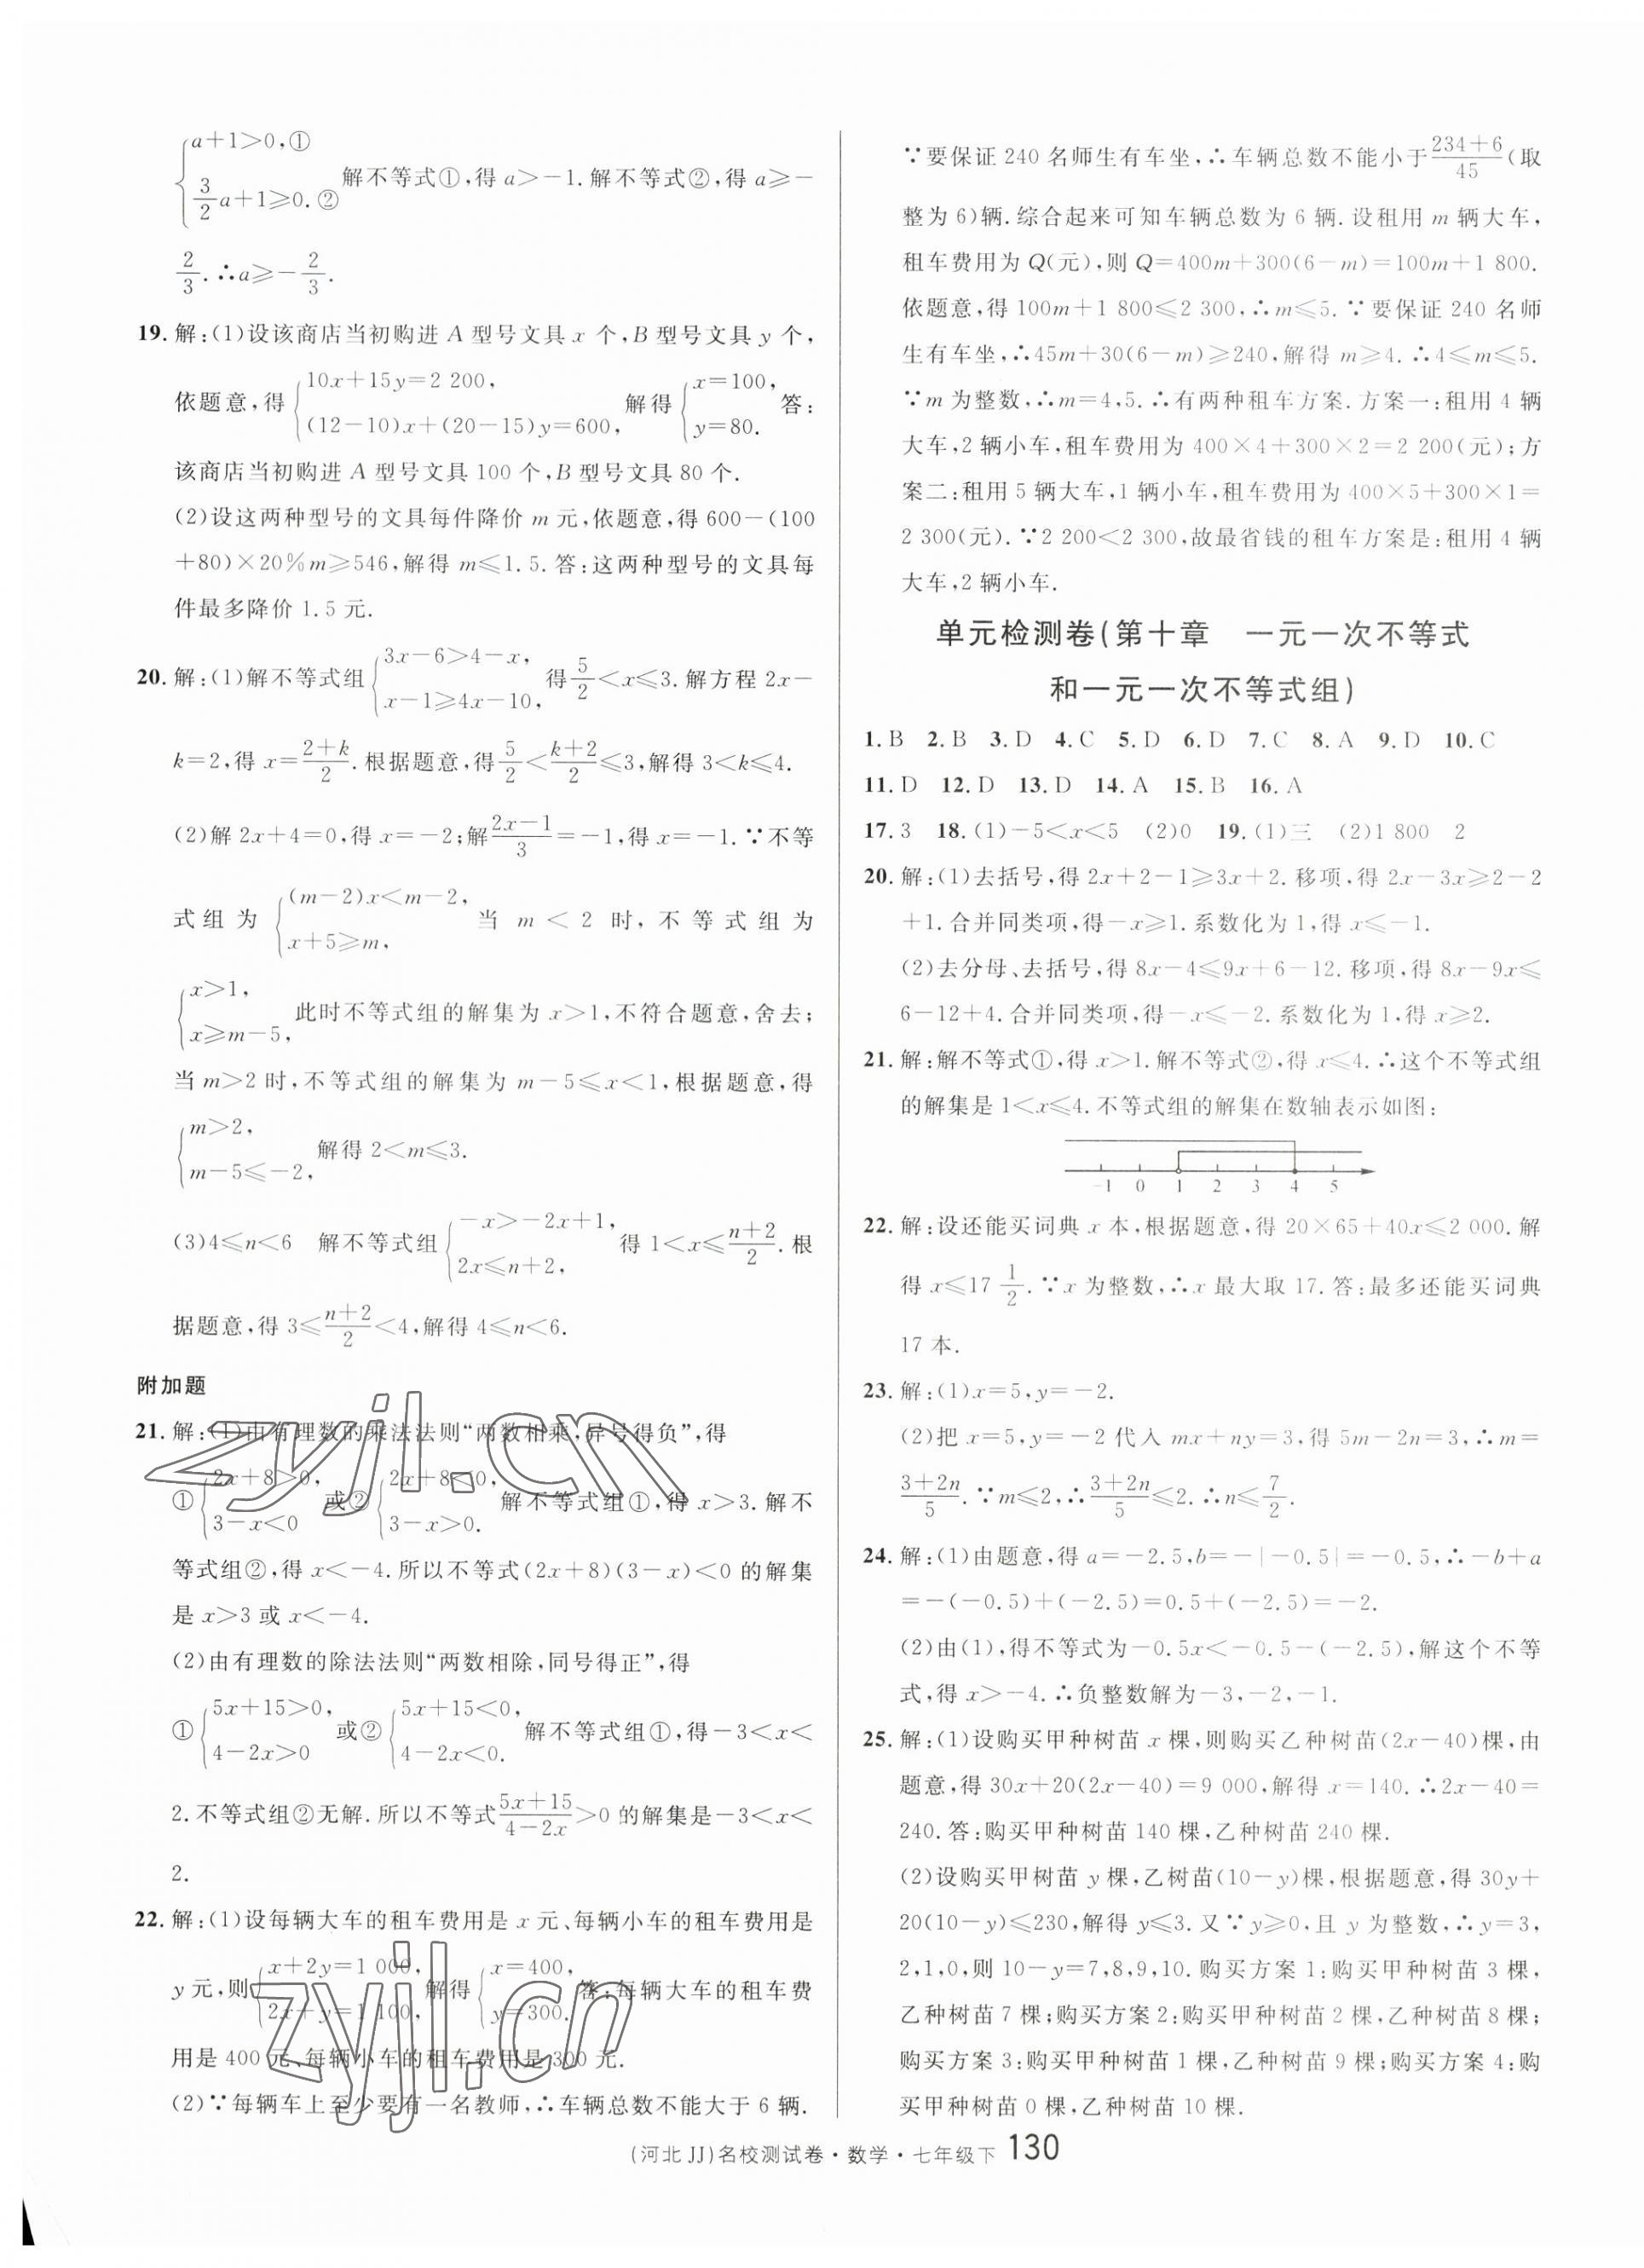 {a+1>0,①
{3/2a+1≥0.② 解不等式①,得 a>-1.解不等式②,得 a≥-
2/3.∴a≥-2/3.
19.解:(1)设该商店当初购进 A 型号文具 x 个,B 型号文具 y 个,
依题意,得{10x+15y=2 200, (12-10)x+(20-15)y=600, 解得{x=100, y=80. 答:
该商店当初购进 A 型号文具 100 个,B 型号文具 80 个.
(2)设这两种型号的文具每件降价 m 元,依题意,得 600-(100
+80)×20%m≥546,解得 m≤1.5.答:这两种型号的文具每
件最多降价 1.5 元.
20.解:(1)解不等式组{3x-6>4-x, x-1≥4x-10, 得5/2<x≤3.解方程 2x-
k=2,得 x=(2+k)/2.根据题意,得5/2<(k+2)/2≤3,解得 3<k≤4.
(2)解 2x+4=0,得 x=-2;解(2x-1)/3=-1,得 x=-1.∵不等
式组为{(m-2)x<m-2, x+5≥m, 当 m<2 时,不等式组为
{x>1, x≥m-5, 此时不等式组的解集为 x>1,不符合题意,舍去;
当 m>2 时,不等式组的解集为 m-5≤x<1,根据题意,得
{m>2, m-5≤-2, 解得 2<m≤3.
(3)4≤n<6 解不等式组{-x>-2x+1, 2x≤n+2, 得 1<x≤(n+2)/2.根
据题意,得 3≤(n+2)/2<4,解得 4≤n<6.
附加题
21.解:(1)由有理数的乘法法则“两数相乘,异号得负”,得
①{2x+8>0, 3-x<0 或②{2x+8<0, 3-x>0. 解不等式组①,得 x>3.解不
等式组②,得 x<-4.所以不等式(2x+8)(3-x)<0 的解集
是 x>3 或 x<-4.
(2)由有理数的除法法则“两数相除,同号得正”,得
①{5x+15>0, 4-2x>0 或②{5x+15<0, 4-2x<0. 解不等式组①,得-3<x<
2.不等式组②无解.所以不等式(5x+15)/(4-2x)>0 的解集是-3<x<
2.
22.解:(1)设每辆大车的租车费用是 x 元、每辆小车的租车费用是
y 元,则{x+2y=1 000, 2x+y=1 100, 解得{x=400, y=300. 答:每辆大车的租车费
用是 400 元、每辆小车的租车费用是 300 元.
(2)∵每辆车上至少要有一名教师,∴车辆总数不能大于 6 辆.
∵要保证 240 名师生有车坐,∴车辆总数不能小于(234+6)/45(取
整为 6)辆.综合起来可知车辆总数为 6 辆.设租用 m 辆大车,
租车费用为 Q(元),则 Q=400m+300(6-m)=100m+1 800.
依题意,得 100m+1 800≤2 300,∴m≤5.∵要保证 240 名师
生有车坐,∴45m+30(6-m)≥240,解得 m≥4.∴4≤m≤5.
∵m 为整数,∴m=4,5.∴有两种租车方案.方案一:租用 4 辆
大车,2 辆小车,租车费用为 400×4+300×2=2 200(元);方
案二:租用 5 辆大车,1 辆小车,租车费用为 400×5+300×1=
2 300(元).∵2 200<2 300,故最省钱的租车方案是:租用 4 辆
大车,2 辆小车.
单元检测卷(第十章 一元一次不等式
和一元一次不等式组)
1.B 2.B 3.D 4.C 5.D 6.D 7.C 8.A 9.D 10.C
11.D 12.D 13.D 14.A 15.B 16.A
17.3 18.(1)-5<x<5 (2)0 19.(1)三 (2)1 800 2
20.解:(1)去括号,得 2x+2-1≥3x+2.移项,得 2x-3x≥2-2
+1.合并同类项,得-x≥1.系数化为 1,得 x≤-1.
(2)去分母、去括号,得 8x-4≤9x+6-12.移项,得 8x-9x≤
6-12+4.合并同类项,得-x≤-2.系数化为 1,得 x≥2.
21.解:解不等式①,得 x>1.解不等式②,得 x≤4.∴这个不等式组
的解集是 1<x≤4.不等式组的解集在数轴表示如图:
-1 0 1 2 3 4 5
22.解:设还能买词典 x 本,根据题意,得 20×65+40x≤2 000.解
得 x≤17 1/2.∵x 为整数,∴x 最大取 17.答:最多还能买词典
17 本.
23.解:(1)x=5,y=-2.
(2)把 x=5,y=-2 代入 mx+ny=3,得 5m-2n=3,∴m=
(3+2n)/5.∵m≤2,∴(3+2n)/5≤2.∴n≤7/2.
24.解:(1)由题意,得 a=-2.5,b=-|-0.5|=-0.5,∴-b+a
=-(-0.5)+(-2.5)=0.5+(-2.5)=-2.
(2)由(1),得不等式为-0.5x<-0.5-(-2.5),解这个不等
式,得 x>-4.∴负整数解为-3,-2,-1.
25.解:(1)设购买甲种树苗 x 棵,则购买乙种树苗(2x-40)棵,由
题意,得 30x+20(2x-40)=9 000,解得 x=140.∴2x-40=
240.答:购买甲种树苗 140 棵,乙种树苗 240 棵.
(2)设购买甲树苗 y 棵,乙树苗(10-y)棵,根据题意,得 30y+
20(10-y)≤230,解得 y≤3.又∵y≥0,且 y 为整数,∴y=3,
2,1,0,则 10-y=7,8,9,10.购买方案 1:购买甲种树苗 3 棵,
乙种树苗 7 棵;购买方案 2:购买甲种树苗 2 棵,乙种树苗 8 棵;
购买方案 3:购买甲种树苗 1 棵,乙种树苗 9 棵;购买方案 4:购
买甲种树苗 0 棵,乙种树苗 10 棵.
(河北 JJ)名校测试卷·数学·七年级下 130
zyjl.cn
zyjl.cn